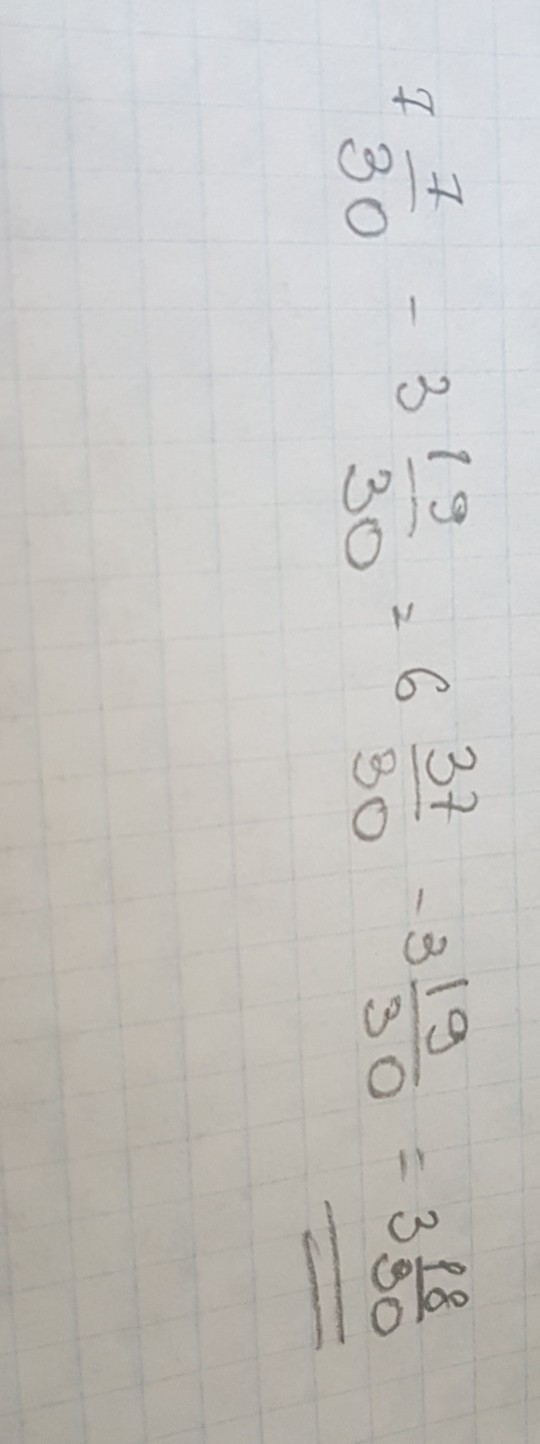 7 7/30 - 3 19/30 = 6 37/30 - 3 19/30 = 3 18/30